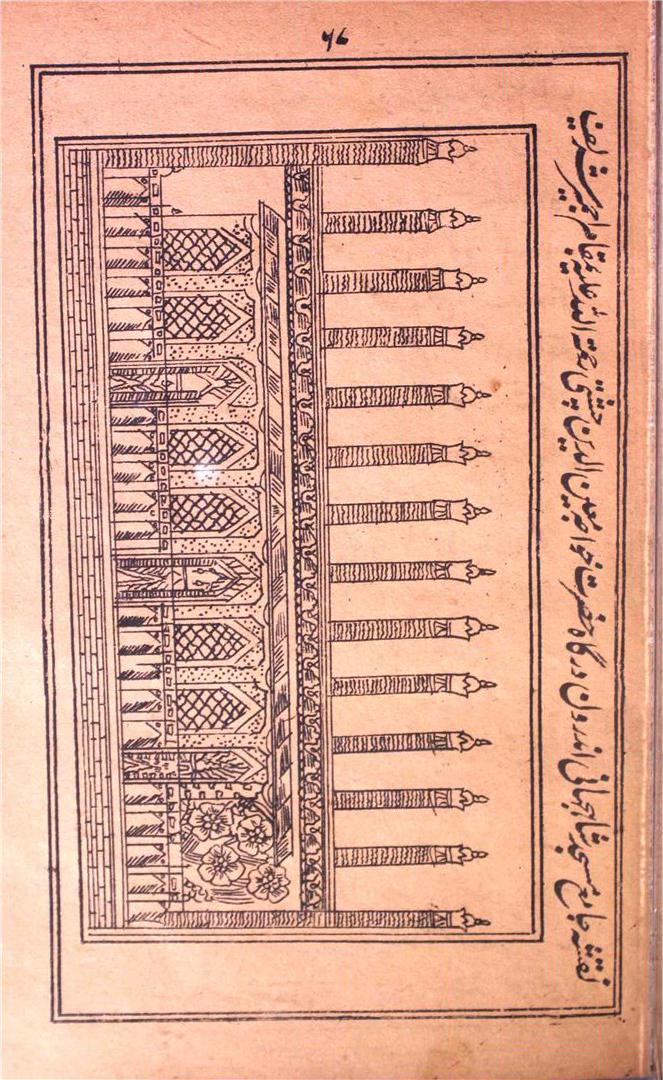 ۶۷
نقشہ جامع مسجد شاہجہانی اندرون درگاہ حضرت خواجہ معین الدین چشتی رحمۃ اللہ علیہ بمقام اجمیر شریف